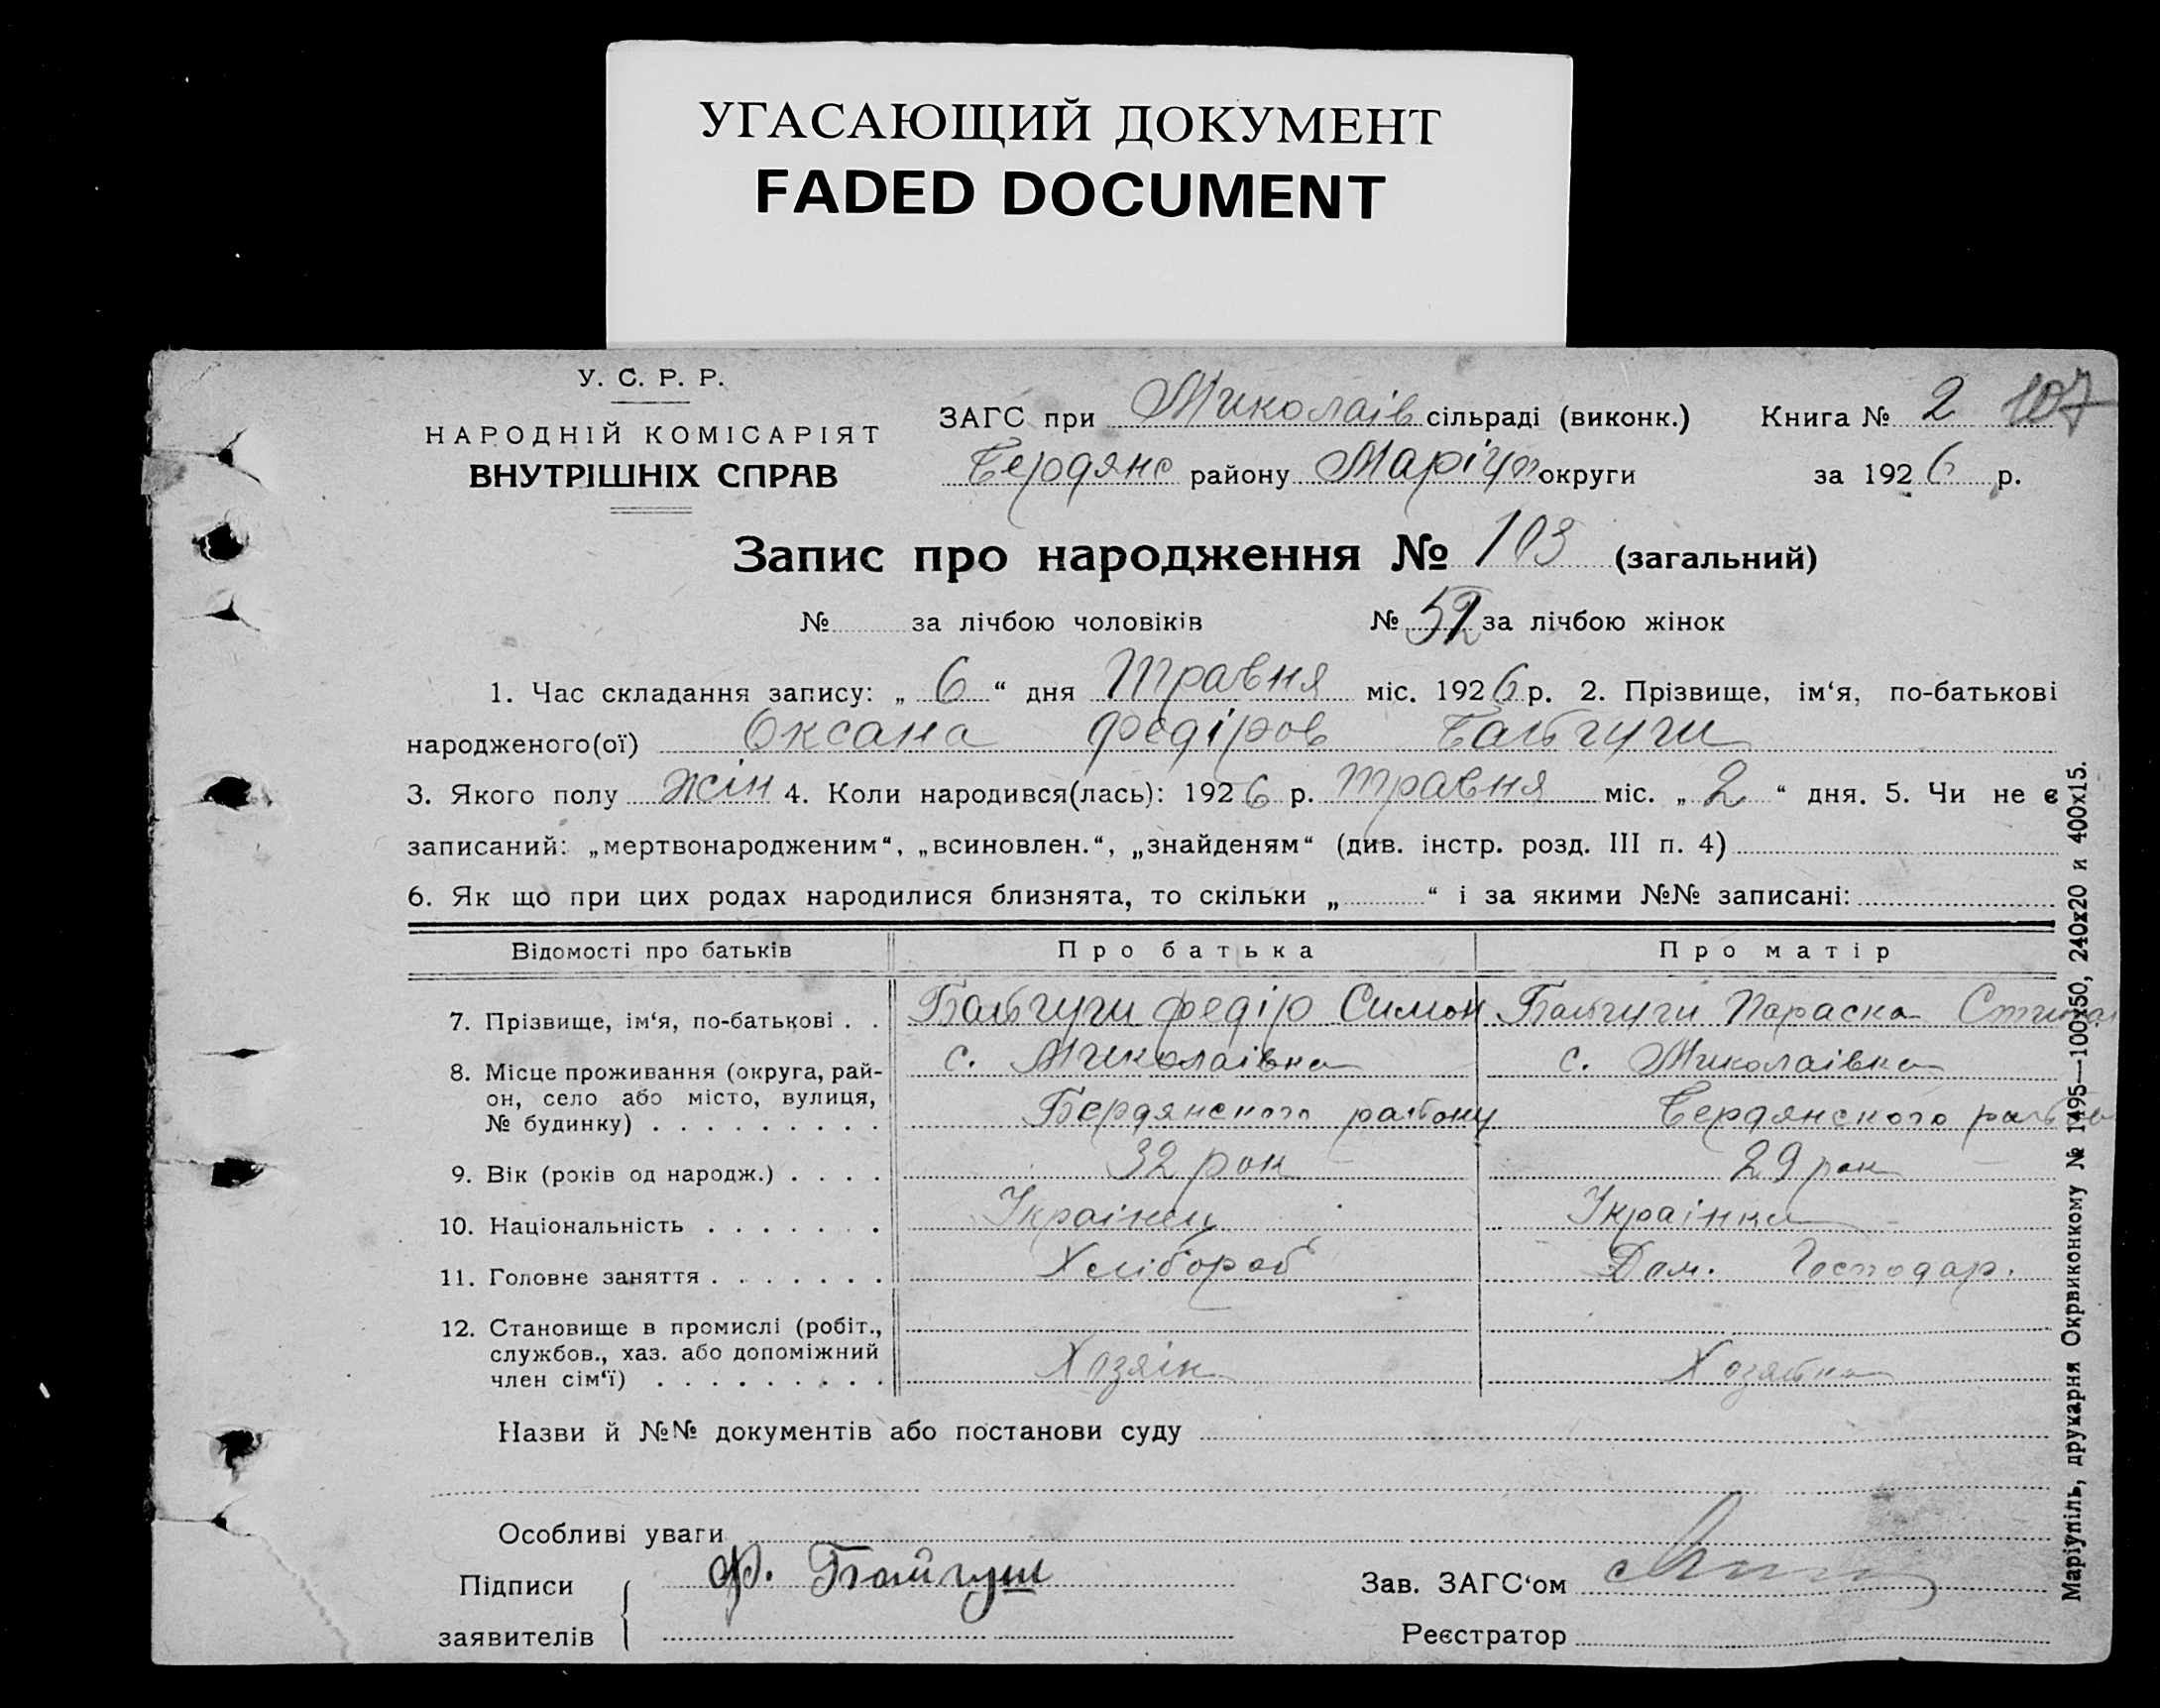 УГАСАЮЩИЙ ДОКУМЕНТ
FADED DOCUMENT
У. С. Р. Р.
НАРОДНІЙ КОМІСАРІЯТ
ВНУТРІШНІХ СПРАВ
ЗАГС при Миколаїв сільраді (виконк.) Книга № 2 107
Бердянс району Маріуп округи за 1926 р.
Запис про народження № 103 (загальний)
№ за лічбою чоловіків № 52 за лічбою жінок
1. Час складання запису: „ 6 “ дня Травня міс. 1926 р. 2. Прізвище, ім‘я, по-батькові
народженого(ої) Оксана Федіров Байгуш
3. Якого полу Жін 4. Коли народився(лась): 1926 р. Травня міс. „ 2 “ дня. 5. Чи не є
записаний: „мертвонародженим“, „всиновлен.“, „знайденям“ (див. інстр. розд. III п. 4)
6. Як що при цих родах народилися близнята, то скільки „ “ і за якими №№ записані:
Відомості про батьків Про батька Про матір
7. Прізвище, ім‘я, по-батькові . . Байгуш Федір Симон Байгуш Параска
8. Місце проживання (округа, рай- с. Миколаівка с. Миколаівка
он, село або місто, вулиця,
№ будинку) . . . . . . . . . Бердянського району Бердянського
9. Вік (років од народж.) . . . . 32 рок 29 рок
10. Національність . . . . . . . Українец Українка
11. Головне заняття . . . . . . . Хлібороб Дом. Господар.
12. Становище в промислі (робіт.,
службов., хаз. або допоміжний
член сім‘ї) . . . . . . . . . Хозяїн Хозяйка
Назви й №№ документів або постанови суду
Особливі уваги
Підписи Ф. Байгуш Зав. ЗАГС‘ом
заявителів Реєстратор
Маріупіль, друкарня Окрвиконкому № 1495—100х50, 240х20 и 400х15.